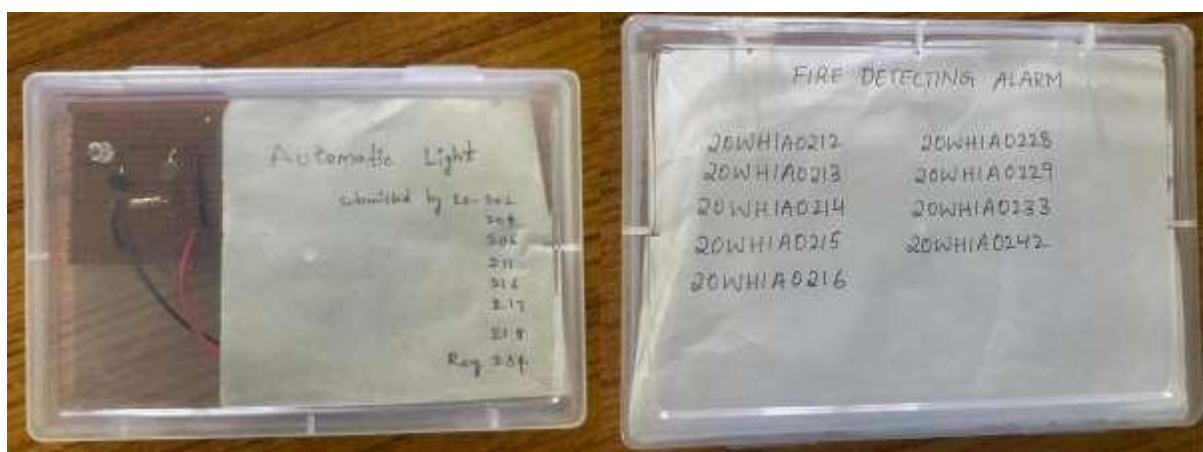 Automatic Light
submitted by 20-
211
216
217
Reg
FIRE DETECTING ALARM
20WH1A0212 20WH1A0228
20WH1A0213 20WH1A0229
20WH1A0214 20WH1A0233
20WH1A0215 20WH1A0242
20WH1A0216